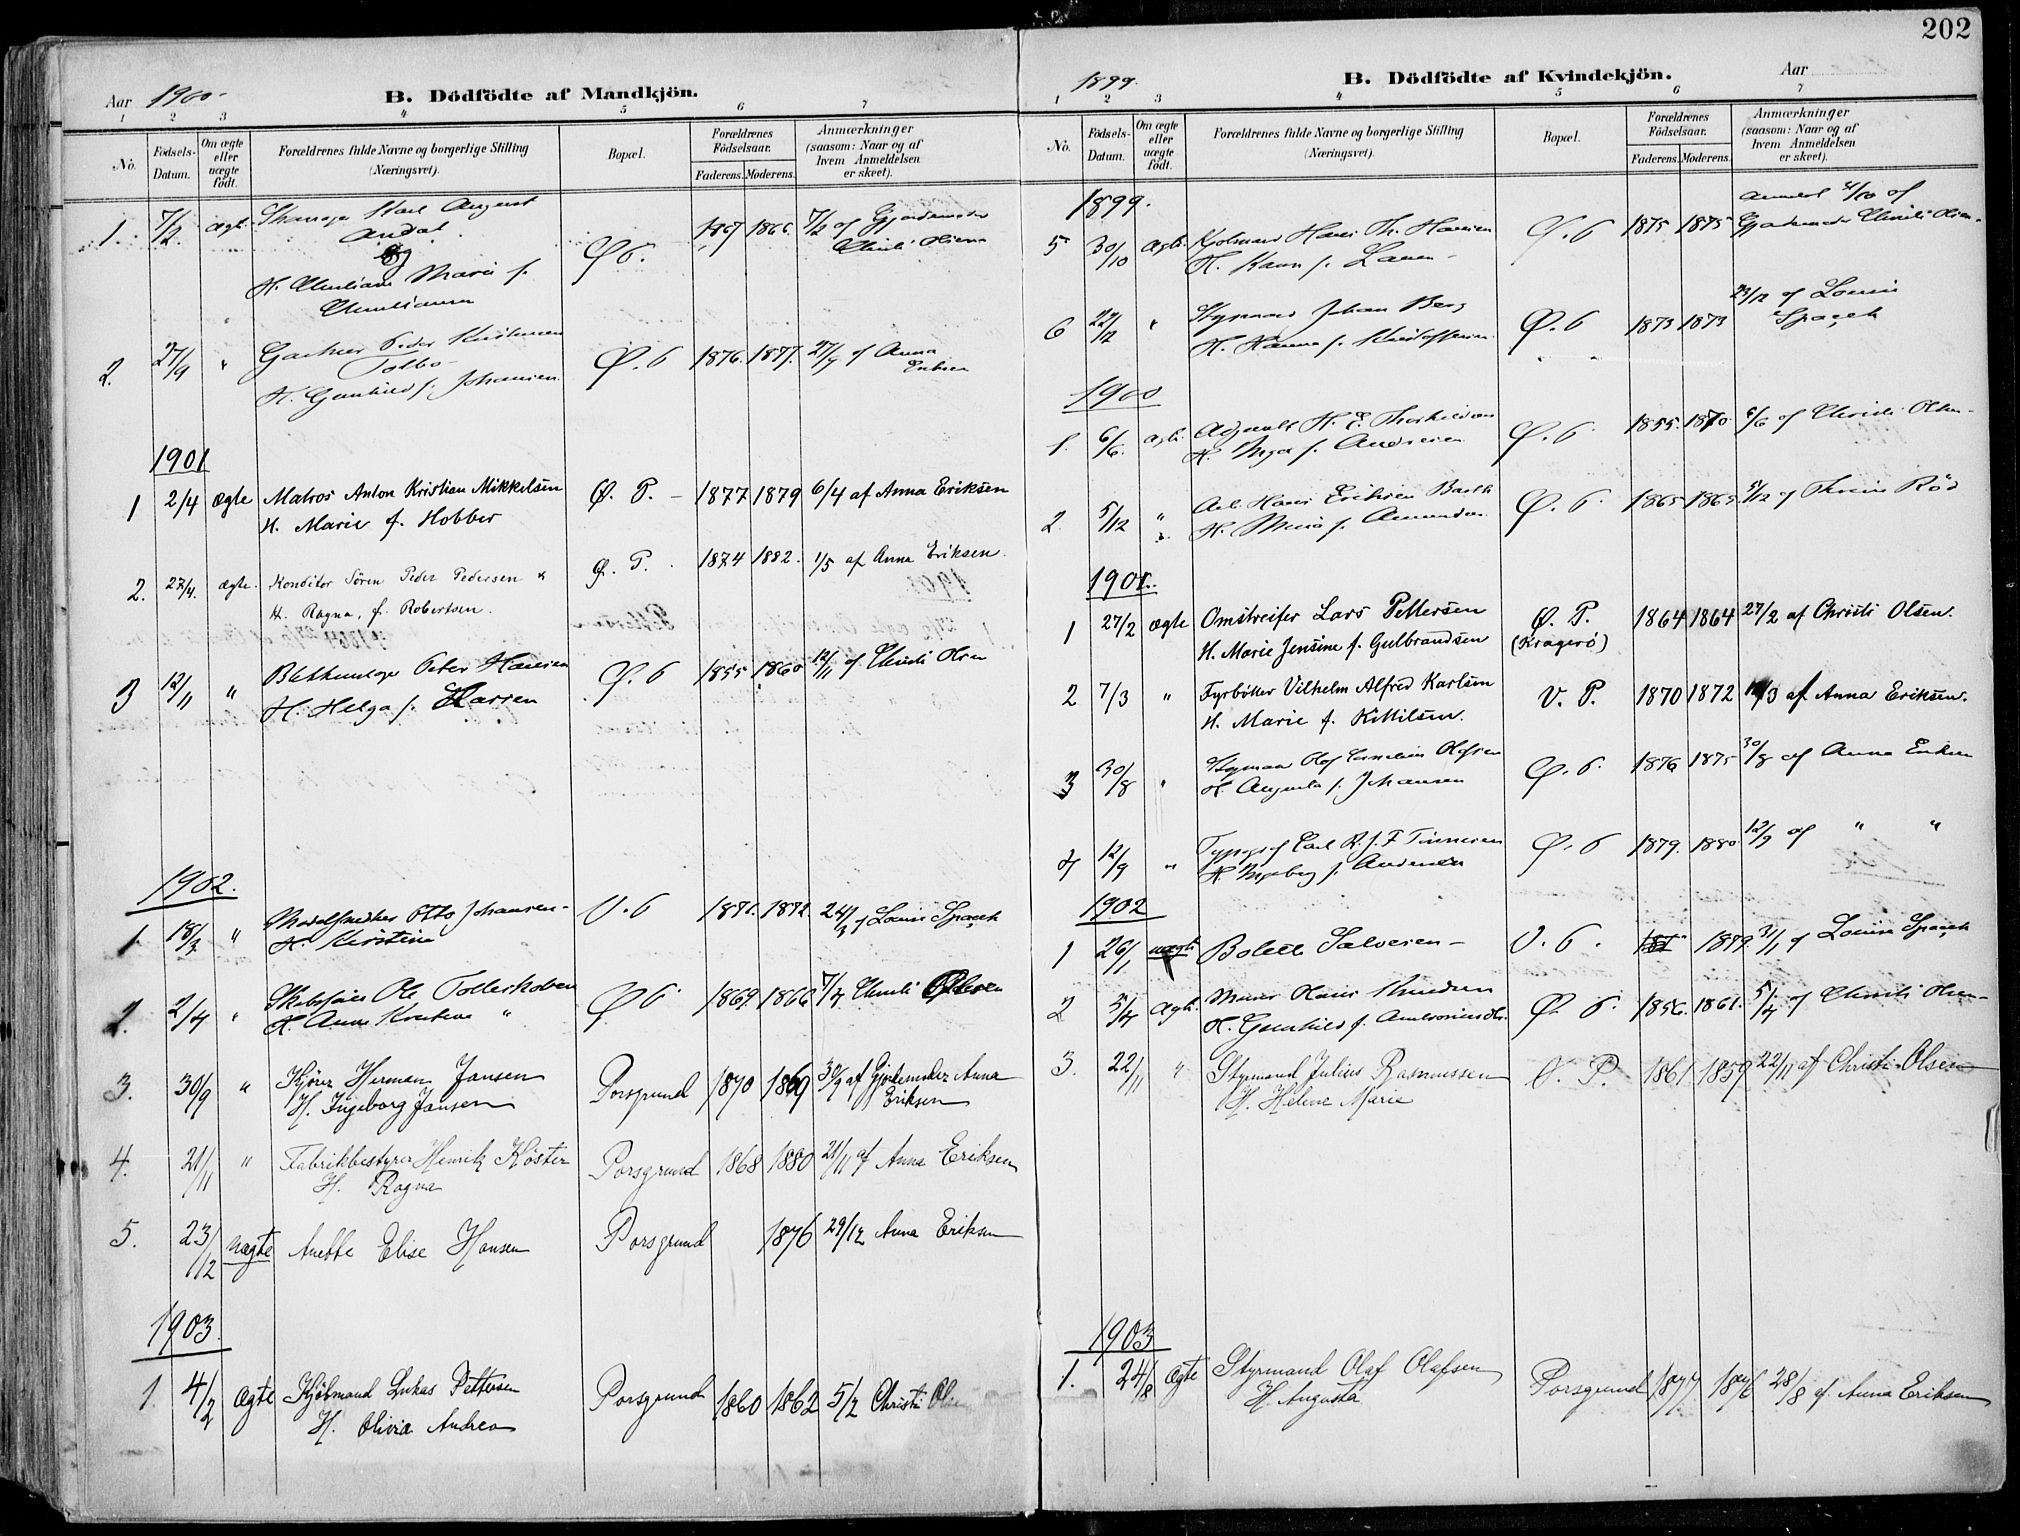 202
Aar 1900.
B. Dödfödte af Mandkjön.
1 2 3 4 5 6 7
No.
Födsels-Datum.
Om ægte eller uægte födt.
Forældrenes fulde Navne og borgerlige Stilling
(Næringsvei).
Bopæl.
Forældrenes Födselsaar.
Faderens. Moderens.
Anmærkninger
(saasom: Naar og af
hvem Anmeldelsen
er skeet).
1. 7/2 ægte Karl August Ø.P. 1867 1866. 7/2 af Gjordemoder
Andal Christi Olsen
og
H. Christiane Marie f.
Christiansen
2. 27/9 " Gartner Peder Kristensen Ø.P. 1876. 1877. 27/9 af Anna
Tolbo Eriksen
H. Gunhild f. Johansen.
1901
1 2/4 ægte Matros Anton Kristian Mikkelsen Ø. P. – 1877 1879 6/4 af Anna Eriksen
H. Marie f. Hobber
2. 27/4. ægte. Konditor Sören Peder Pedersen & Ø. P. 1874 1882. 1/5 af Anna Eriksen.
H. Ragna, f. Robertsen.
3 12/11 " Peter Hansen Ø.P. 1855 1860 12/11 af Christi Olsen
H. Helga f. Larsen
1902.
1. 18/3 " Otto Johansen V.P. 1871. 1872. 24/3 af Louise Spaceh
H. Kirstine
2. 2/4 " Ole Tollerskoven Ø.P. 1869. 1866 7/4 Christi Olsen
H. Anne Kirstine "
3. 30/9 " Kjører Herman Jansen Porsgrund 1870 1869 30/9 af Gjordemoder Anna
H. Ingeborg Jansen Eriksen
4. 21/11 " Fabrikbestyrer Henrik Köster Porsgrund 1868 1880 21/11 af Anna Eriksen
H. Ragna
5. 23/12 uægte Anette Elise Hansen Porsgrund 1876 29/12 Anna Eriksen
1903
1. 4/2 ægte Kjøbmand Lukas Pettersen Porsgrund 1860 1862 5/2 Christi Olsen
H. Olivia Andrea
1899.
B. Dödfödte af Kvindekjön.
Aar
1 2 3 4 5 6 7
No.
Födsels-Datum.
Om ægte eller uægte födt.
Forældrenes fulde Navne og borgerlige Stilling
(Næringsvei).
Bopæl.
Forældrenes Födselsaar.
Faderens. Moderens.
Anmærkninger
(saasom: Naar og af
hvem Anmeldelsen
er skeet).
1899.
5 30/10 ægte Hans Th. Hansen Ø.P. 1875 1875 Gjordemoder Christi Olsen.
H. Karen f. Larsen
6 22/12 " Styrmand Johan Berg Ø.P 1873 1873 23/12 af Louise
H. Hanna f. Kristoffersen. Spaceh
1900
1. 6/6. ægte H. E. Thorkildsen Ø.P. 1855. 1870 6/6 af Christi Olsen
H. Inga f. Andersen
2. 5/12 " Arb. Hans Eriksen Barth Ø.P. 1865 1865 5/12 af Rød
H. f. Amundsen
1901.
1 27/2 ægte Omstreifer Lars Pettersen Ø. P. 1864 1864 27/2 af Christi Olsen.
H. Marie Jensine f. Gulbrandsen (Kragerö)
2 7/3 " Fyrböter Vilhelm Alfred Karlsen V. P. 1870 1872 /3 af Anna Eriksen.
H. Marie f. Kittilsen.
3 30/8 " Styrmand Olaf Cornelius Olafsen Ø.P. 1876 1875 30/8 af Anna Eriksen
H. Augusta f. Johansen
4 12/9 " Typograf Carl R. J. F. Ø.P 1879. 1880 12/9 af " "
H. Ingeborg f. Andersen
1902
1 26/1 uægte Bolette Salvesen – V.P. 1879. 31/1 af Louise Spaceh
2 5/4 ægte. Hans Knudsen Ø.P. 1856. 1861. 5/4 af Christi Olsen
H. Gunhild f. Ambrosiusdtr.
3. 22/11 " Styrmand Julius Rasmussen V. P. 1861 1859 22/11 af Christi Olsen
H. Helene Marie
1903
1. 24/8 ægte Styrmand Olaf Olafsen Porsgrund 1877 1876 28/8 af Anna Eriksen
H. Augusta